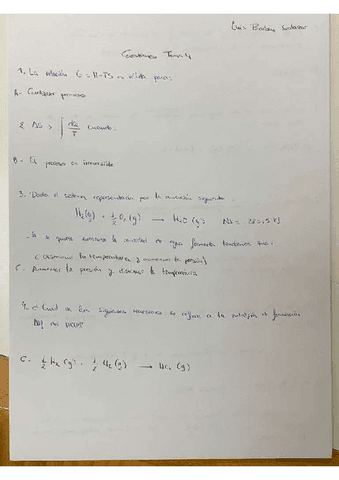 Cuestiones Tema 4
1. La relación G = H-TS es válida para:
A- Cualquier proceso
2. ΔS > ∫ dQ/T cuando:
B - El proceso es irreversible
3. Dado el sistema representado por la ecuación siguiente:
H₂(g) + ½ O₂(g) → H₂O(g)
Si se quiere aumentar la cantidad de agua formada tendremos que:
(disminuir la temperatura y aumentar la presión)
C. Aumentar la presión y disminuir la temperatura
4. ¿Cuál de las siguientes reacciones se refiere a la entalpía de formación
C - ½ H₂(g) + ½ Cl₂(g) → HCl(g)